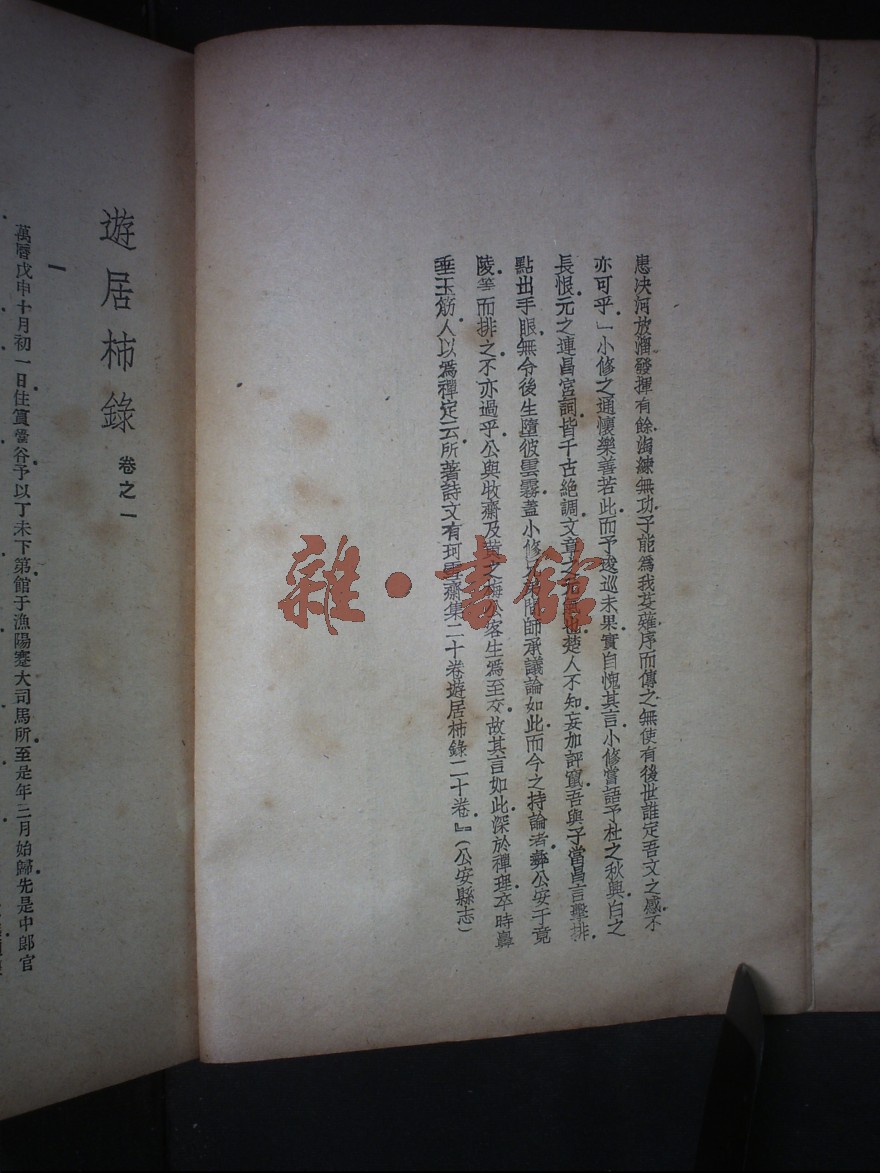 患決河放溜發揮有餘淘練無功子能爲我芟薙序而傳之無使有後世誰定吾文之感不
亦可乎」小修之通懷樂善若此而予逡巡未果實自愧其言小修嘗語予杜之秋興白之
長恨元之連昌宮詞皆千古絶調文章之元氣也楚人不知妄加評竄吾與子當昌言擊排
點出手眼無令後生墮彼雲霧蓋小修兄弟間師承議論如此而今之持論者夷公安于竟
陵等而排之不亦過乎公與牧齋及黃之梅公客生爲至交故其言如此深於禪理卒時鼻
垂玉筯人以爲禪定云所著詩文有珂雪齋集二十卷遊居柿錄二十卷』(公安縣志)
雜·書館
遊居柿錄 卷之一
一
萬曆戊申十月初一日住篔簹谷予以丁未下第館于漁陽蹇大司馬所至是年二月始歸先是中郎官